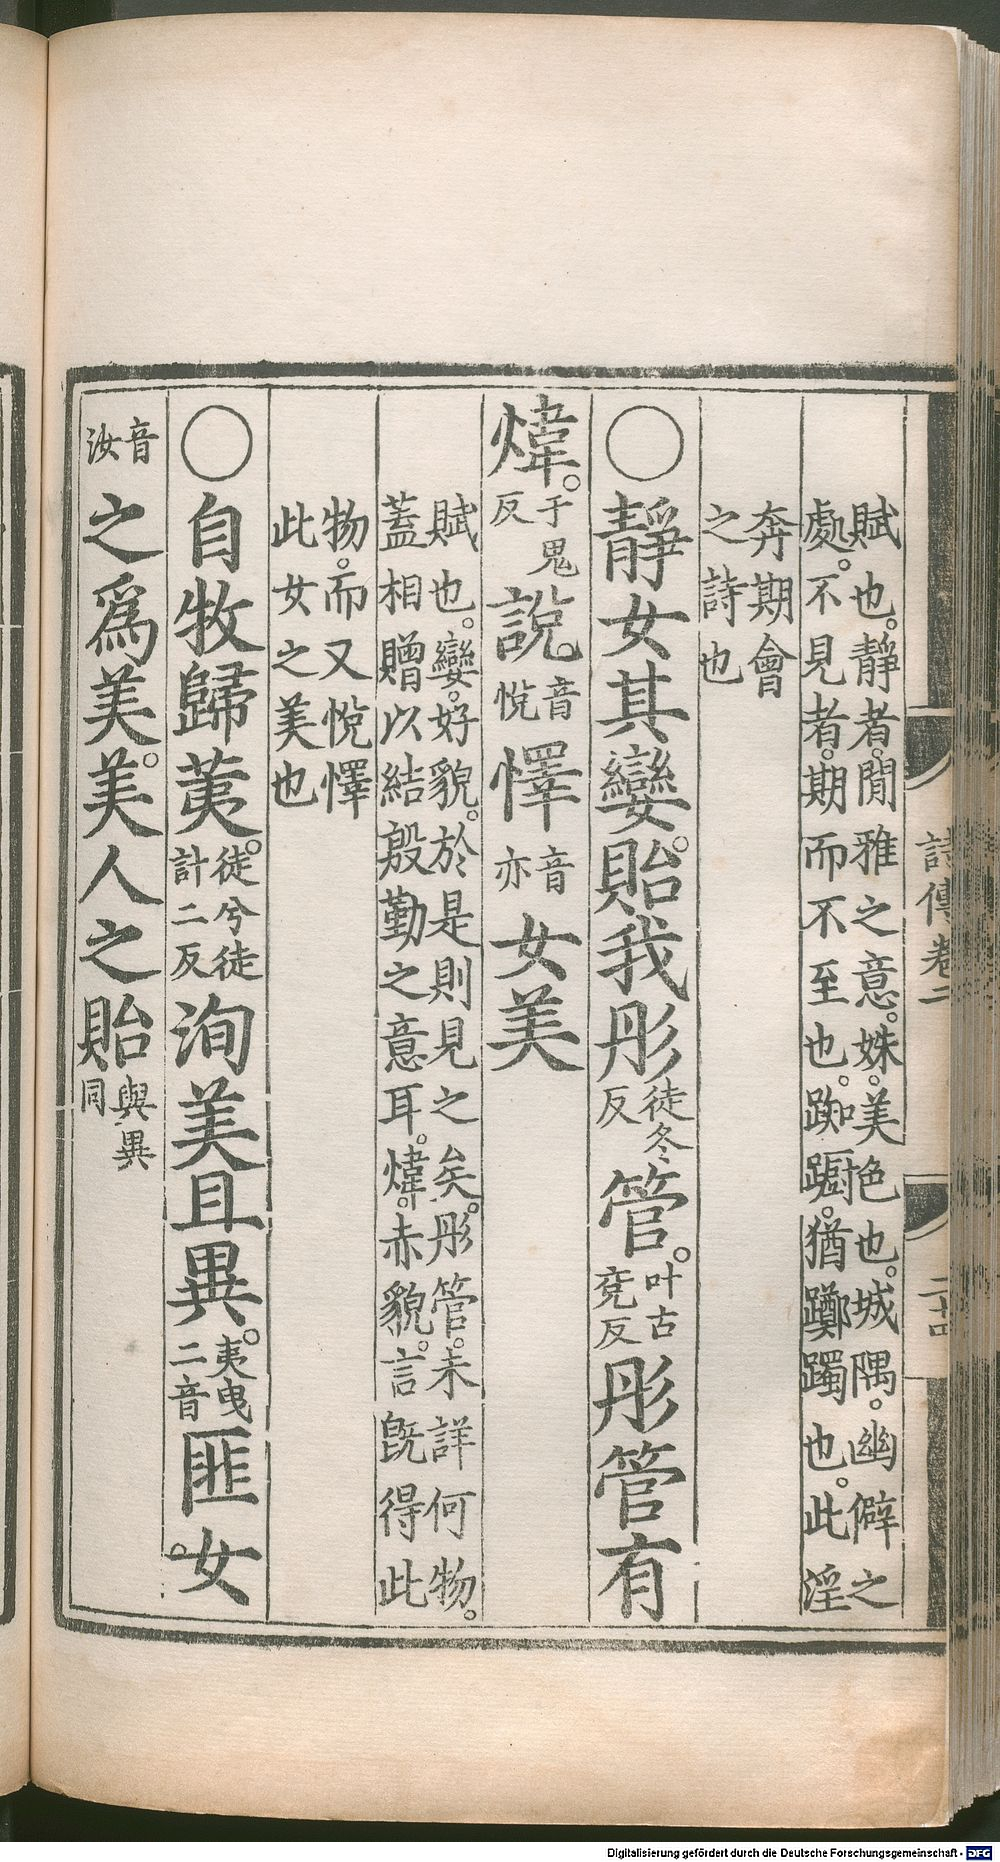 賦也。靜者。閒雅之意。姝。美色也。城隅。幽僻之
處。不見者。期而不至也。踟躕。猶躑躅也。此淫
奔期會
之詩也
○靜女其孌。貽我彤徒冬反管。叶古兗反彤管有
煒。于鬼反說。音悅懌音亦女美
賦也。孌。好貌。於是則見之矣。彤管。未詳何物。
蓋相贈以結殷勤之意耳。煒。赤貌。言既得此
物。而又悅懌
此女之美也
○自牧歸荑。徒兮徒計二反洵美且異。夷曳二音匪女。
音汝之爲美。美人之貽與異同
詩傳卷二
二十四
Digitalisierung gefördert durch die Deutsche Forschungsgemeinschaft - DFG